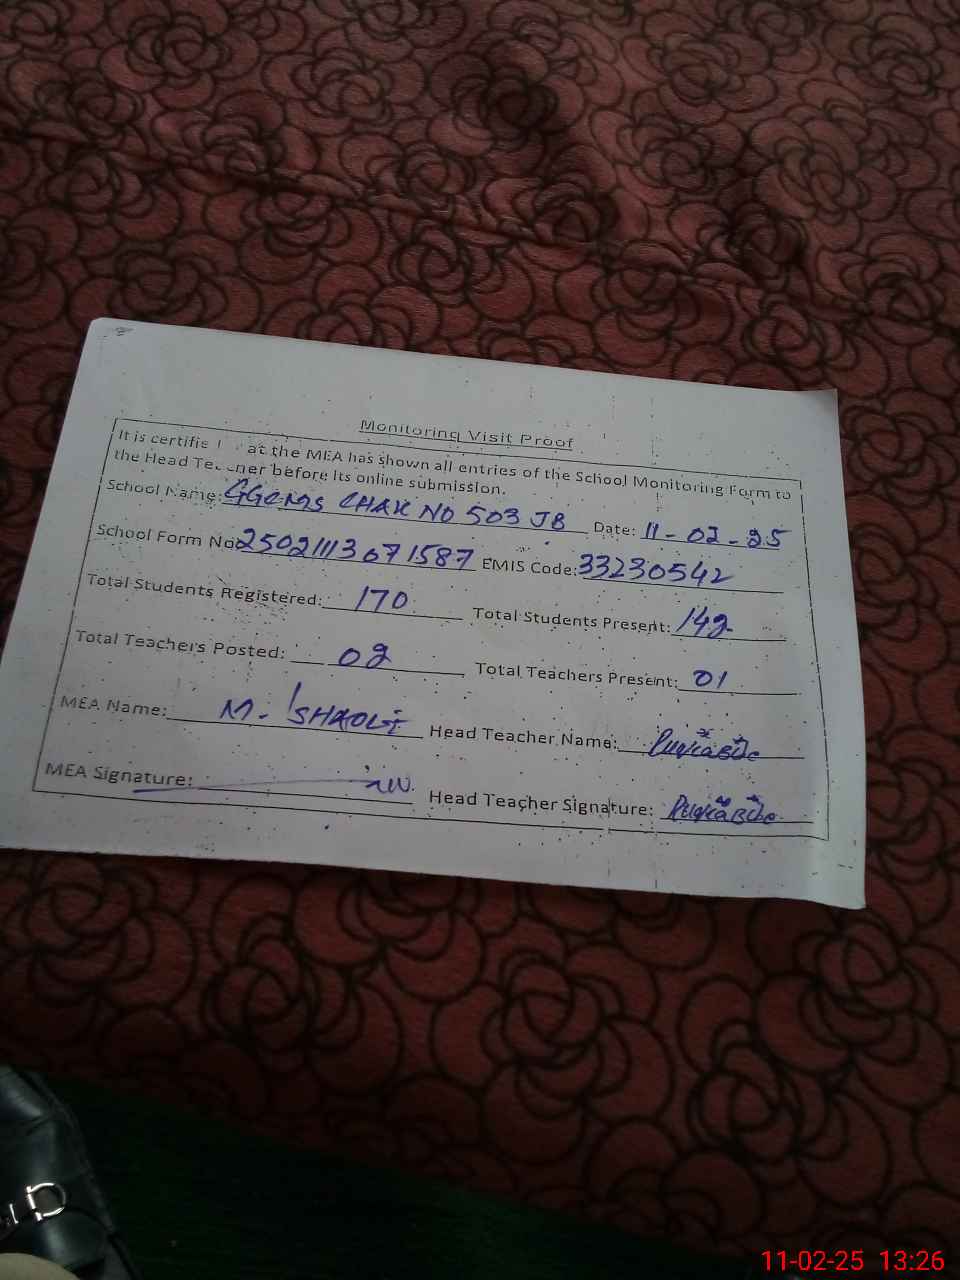 Monitoring Visit Proof
It is certifie at the MEA has shown all entries of the School Monitoring Form to
the Head Te ner before its online submission.
School Name: GGCMS CHAK NO 503 JB Date: 11-02-25
School Form No: 25021113071587 EMIS Code: 33230542
Total Students Registered: 170 Total Students Present: 142
Total Teachers Posted: 02 Total Teachers Present: 01
MEA Name: M. Head Teacher Name:
MEA Signature: Head Teacher Signature:
11-02-25 13:26